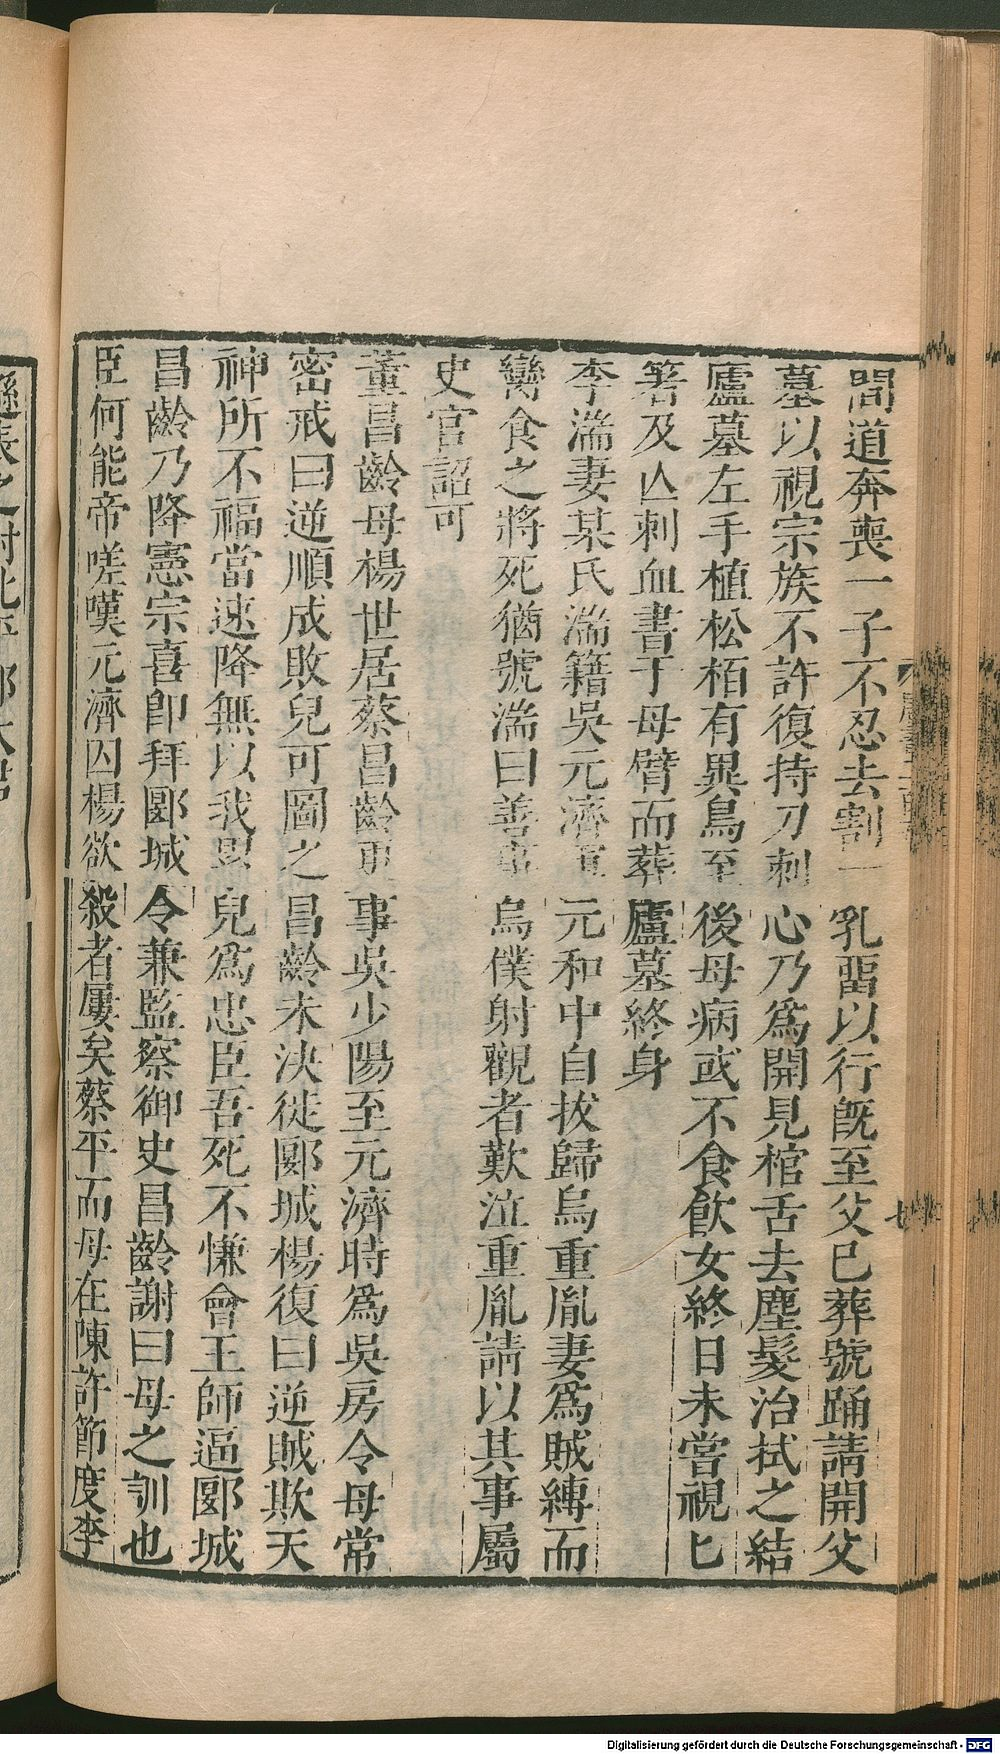 間道奔喪一子不忍去割一乳畱以行旣至父已葬號踊請開父
墓以視宗族不許復持刀刺心乃爲開見棺舌去塵髮治拭之結
廬墓左手植松栢有異鳥至後母病或不食飮女終日未嘗視匕
箸及亾刺血書于母臂而葬廬墓終身
李湍妻某氏湍籍吳元濟軍元和中自拔歸烏重胤妻爲賊縛而
臠食之將死猶號湍曰善事烏僕射觀者歎泣重胤請以其事屬
史官詔可
董昌齡母楊世居蔡昌齡更事吳少陽至元濟時爲吳房令母常
密戒曰逆順成敗兒可圖之昌齡未決徙郾城楊復曰逆賊欺天
神所不福當速降無以我累兒爲忠臣吾死不慊會王師逼郾城
昌齡乃降憲宗喜卽拜郾城令兼監察御史昌齡謝曰母之訓也
臣何能帝嗟嘆元濟囚楊欲殺者屢矣蔡平而母在陳許節度李
Digitalisierung gefördert durch die Deutsche Forschungsgemeinschaft - DFG